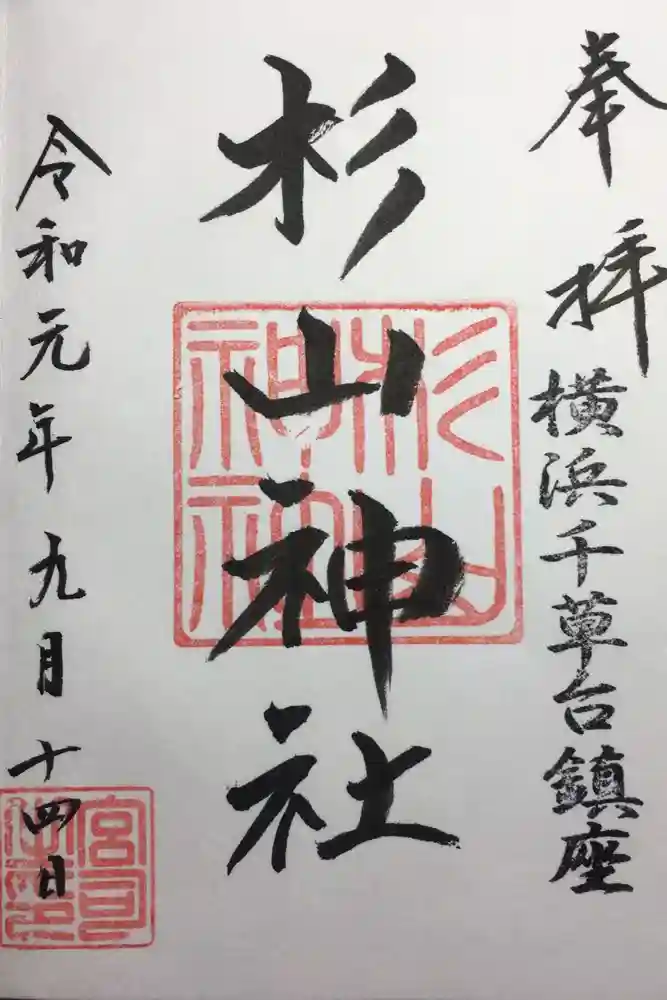 奉拝
横浜千草台鎮座
杉山神社
杉山神社
令和元年九月十四日
宮司之印